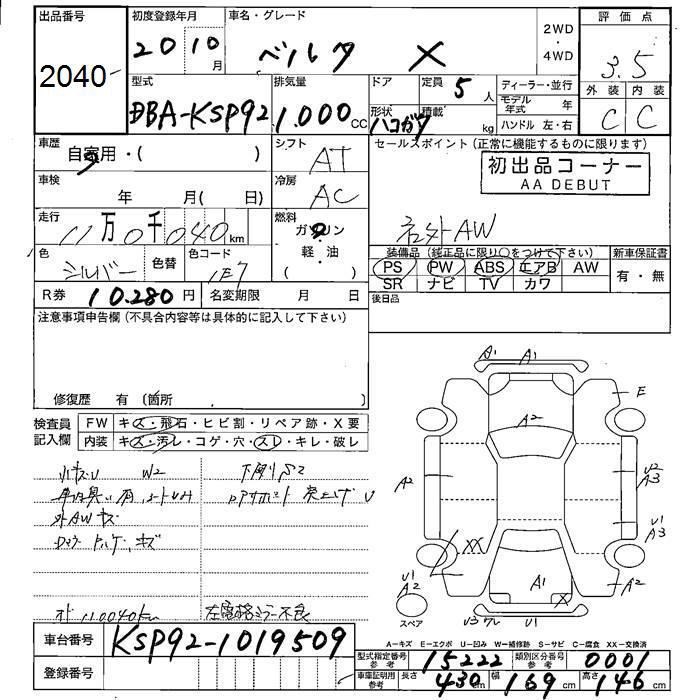 出品番号
2040
初度登録年月
2010月
車名・グレード
ベルタ X
2WD
・
4WD
評価点
3.5
外装 内装
C C
型式
DBA-KSP92
排気量
1.000cc
ドア
形状
ハコガタ
定員 5人
積載 kg
ディーラー・並行
モデル年式 年
ハンドル 左・右
車歴
自家用・( )
シフト
AT
車検
年 月( 日)
冷房
AC
走行
11万0千040km
燃料
ガソリン
軽・油
( )
色
シルバー
色替
色コード
1E7
R券 10.280円
名変期限 月 日
セールスポイント(正常に機能するものに限ります)
初出品コーナー
AA DEBUT
社外AW
装備品(純正品に限り○をつけて下さい)
PS PW ABS エアB AW
SR ナビ TV カワ
新車保証書
有・無
後日品
注意事項申告欄(不具合内容等は具体的に記入して下さい)
修復歴 有(箇所 )
検査員
記入欄
FW キズ・飛石・ヒビ割・リペア跡・X要
内装 キズ・汚レ・コゲ・穴・スレ・キレ・破レ
小キズU W2
下廻りS2
外AWキズ
110040km
左電格ミラー不良
A1 A1
E
A2
A2
U2
A3
U1
A3
XX
U1
A2
A1
X
A2
スペア
U1
A-キズ E-エクボ U-凹み W-補修跡 S-サビ C-腐食 XX-交換済
車台番号
KSP92-1019509
登録番号
型式指定番号
参考
15222
類別区分番号
参考
0001
車庫証明用
参考
長さ 430cm
幅 169cm
高さ 146cm